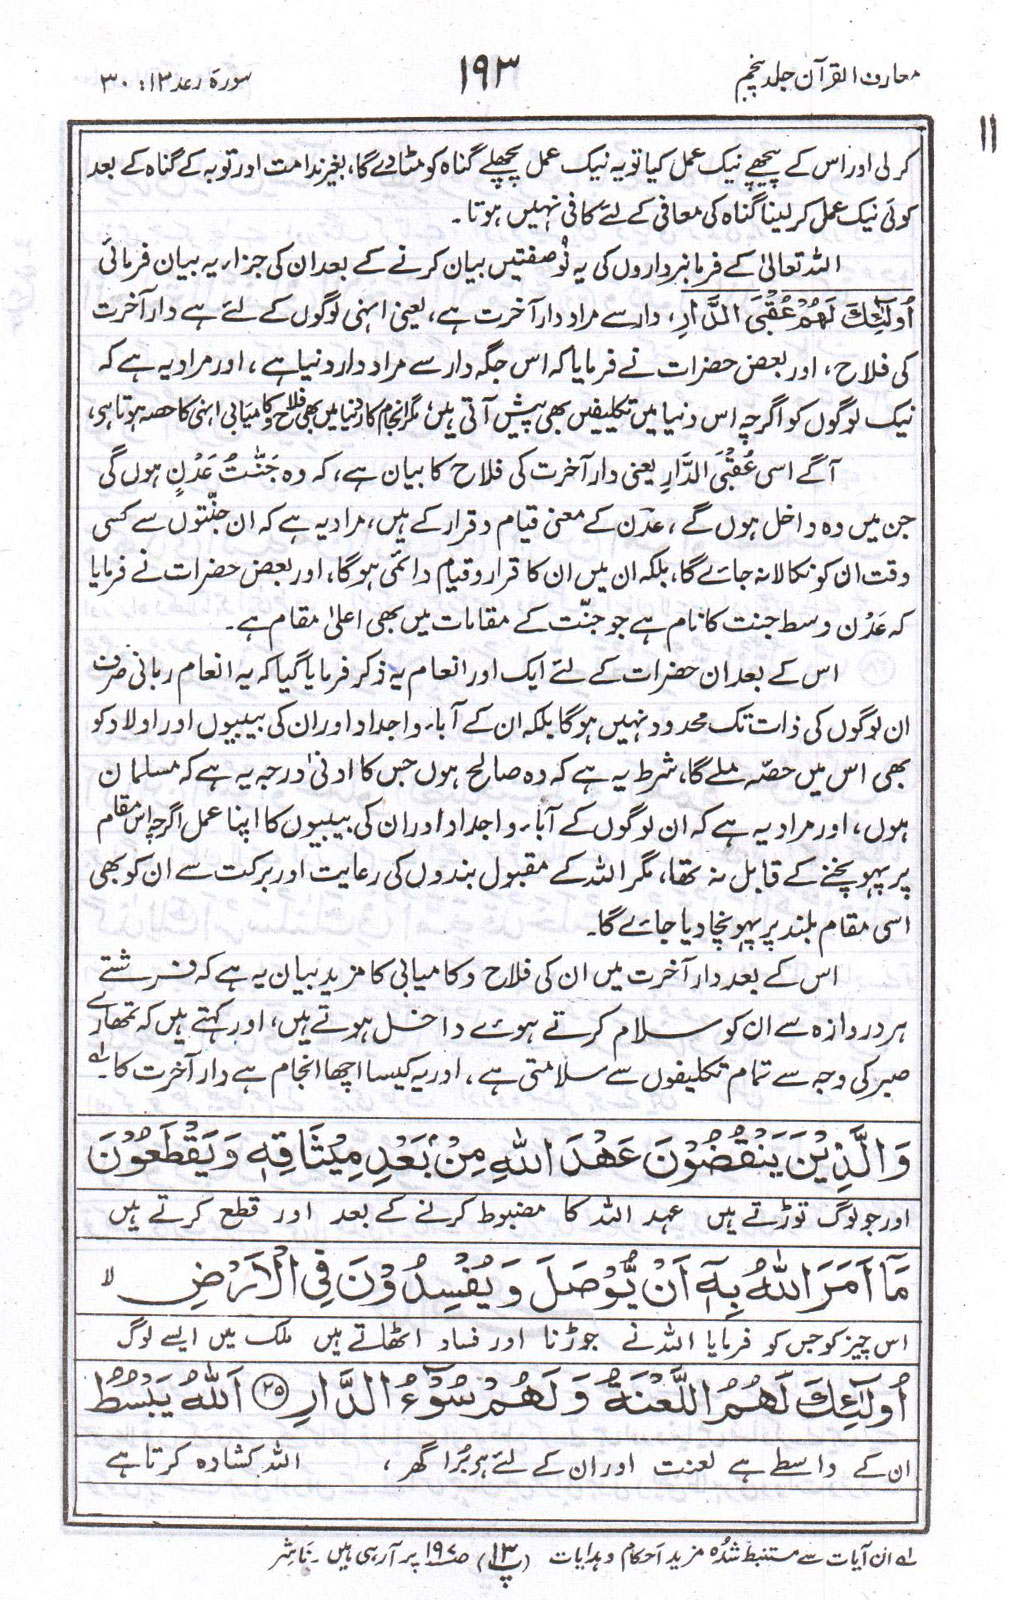 معارف القرآن جلد پنجم
۱۹۳
سورۂ رعد ۱۳: ۳۰
۱۱
کر لی اور اس کے پیچھے نیک عمل کیا تو یہ نیک عمل پچھلے گناہ کو مٹا دے گا، بغیر ندامت اور توبہ کے گناہ کے بعد
کوئی نیک عمل کر لینا گناہ کی معافی کے لئے کافی نہیں ہوتا۔
اللہ تعالیٰ کے فرمانبرداروں کی یہ نو صفتیں بیان کرنے کے بعد ان کی جزاء یہ بیان فرمائی
اُولٰٓئِكَ لَهُمْ عُقْبَى الدَّارِ، دار سے مراد دار آخرت ہے، یعنی انہی لوگوں کے لئے ہے دار آخرت
کی فلاح، اور بعض حضرات نے فرمایا کہ اس جگہ دار سے مراد دار دنیا ہے، اور مراد یہ ہے کہ
نیک لوگوں کو اگرچہ اس دنیا میں تکلیفیں بھی پیش آتی ہیں، مگر انجام کار دنیا میں بھی فلاح و کامیابی انہی کا حصہ ہوتا ہی،
آگے اسی عُقْبَى الدَّارِ یعنی دار آخرت کی فلاح کا بیان ہے، کہ وہ جَنّٰتُ عَدْنٍ ہوں گی
جن میں وہ داخل ہوں گے، عدن کے معنی قیام و قرار کے ہیں، مراد یہ ہے کہ ان جنّتوں سے کسی
وقت ان کو نکالا نہ جائے گا، بلکہ ان میں ان کا قرار و قیام دائمی ہوگا، اور بعض حضرات نے فرمایا
کہ عَدْن وسط جنت کا نام ہے جو جنّت کے مقامات میں بھی اعلیٰ مقام ہے۔
اس کے بعد ان حضرات کے لئے ایک اور انعام یہ ذکر فرمایا گیا کہ یہ انعام ربانی صرف
ان لوگوں کی ذات تک محدود نہیں ہوگا بلکہ ان کے آباء و اجداد اور ان کی بیبیوں اور اولاد کو
بھی اس میں حصّہ ملے گا، شرط یہ ہے کہ وہ صالح ہوں جس کا ادنیٰ درجہ یہ ہے کہ مسلمان
ہوں، اور مراد یہ ہے کہ ان لوگوں کے آباء و اجداد اور ان کی بیبیوں کا اپنا عمل اگرچہ اس مقام
پر پہونچنے کے قابل نہ تھا، مگر اللہ کے مقبول بندوں کی رعایت اور برکت سے ان کو بھی
اسی مقام بلند پر پہونچا دیا جائے گا۔
اس کے بعد دار آخرت میں ان کی فلاح و کامیابی کا مزید بیان یہ ہے کہ فرشتے
ہر دروازہ سے ان کو سلام کرتے ہوئے داخل ہوتے ہیں، اور کہتے ہیں کہ تمھارے
صبر کی وجہ سے تمام تکلیفوں سے سلامتی ہے، اور یہ کیسا اچھا انجام ہے دار آخرت کا۔ لہ
وَالَّذِيْنَ يَنْقُضُوْنَ عَهْدَ اللّٰهِ مِنْۢ بَعْدِ مِيْثَاقِهٖ وَيَقْطَعُوْنَ
اور جو لوگ توڑتے ہیں عہد اللہ کا مضبوط کرنے کے بعد اور قطع کرتے ہیں
مَآ اَمَرَ اللّٰهُ بِهٖٓ اَنْ يُّوْصَلَ وَيُفْسِدُوْنَ فِي الْاَرْضِ ۙ
اس چیز کو جس کو فرمایا اللہ نے جوڑنا اور فساد اٹھاتے ہیں ملک میں ایسے لوگ
اُولٰٓئِكَ لَهُمُ اللَّعْنَةُ وَلَهُمْ سُوْٓءُ الدَّارِ ۝۲۵ اَللّٰهُ يَبْسُطُ
ان کے واسطے ہے لعنت اور ان کے لئے ہر بُرا گھر، اللہ کشادہ کرتا ہے
لہ ان آیات سے مستنبط شدہ مزید احکام و ہدایات (پ ۱۳) صفحہ ۱۹۷ پر آ رہی ہیں۔ ناشر